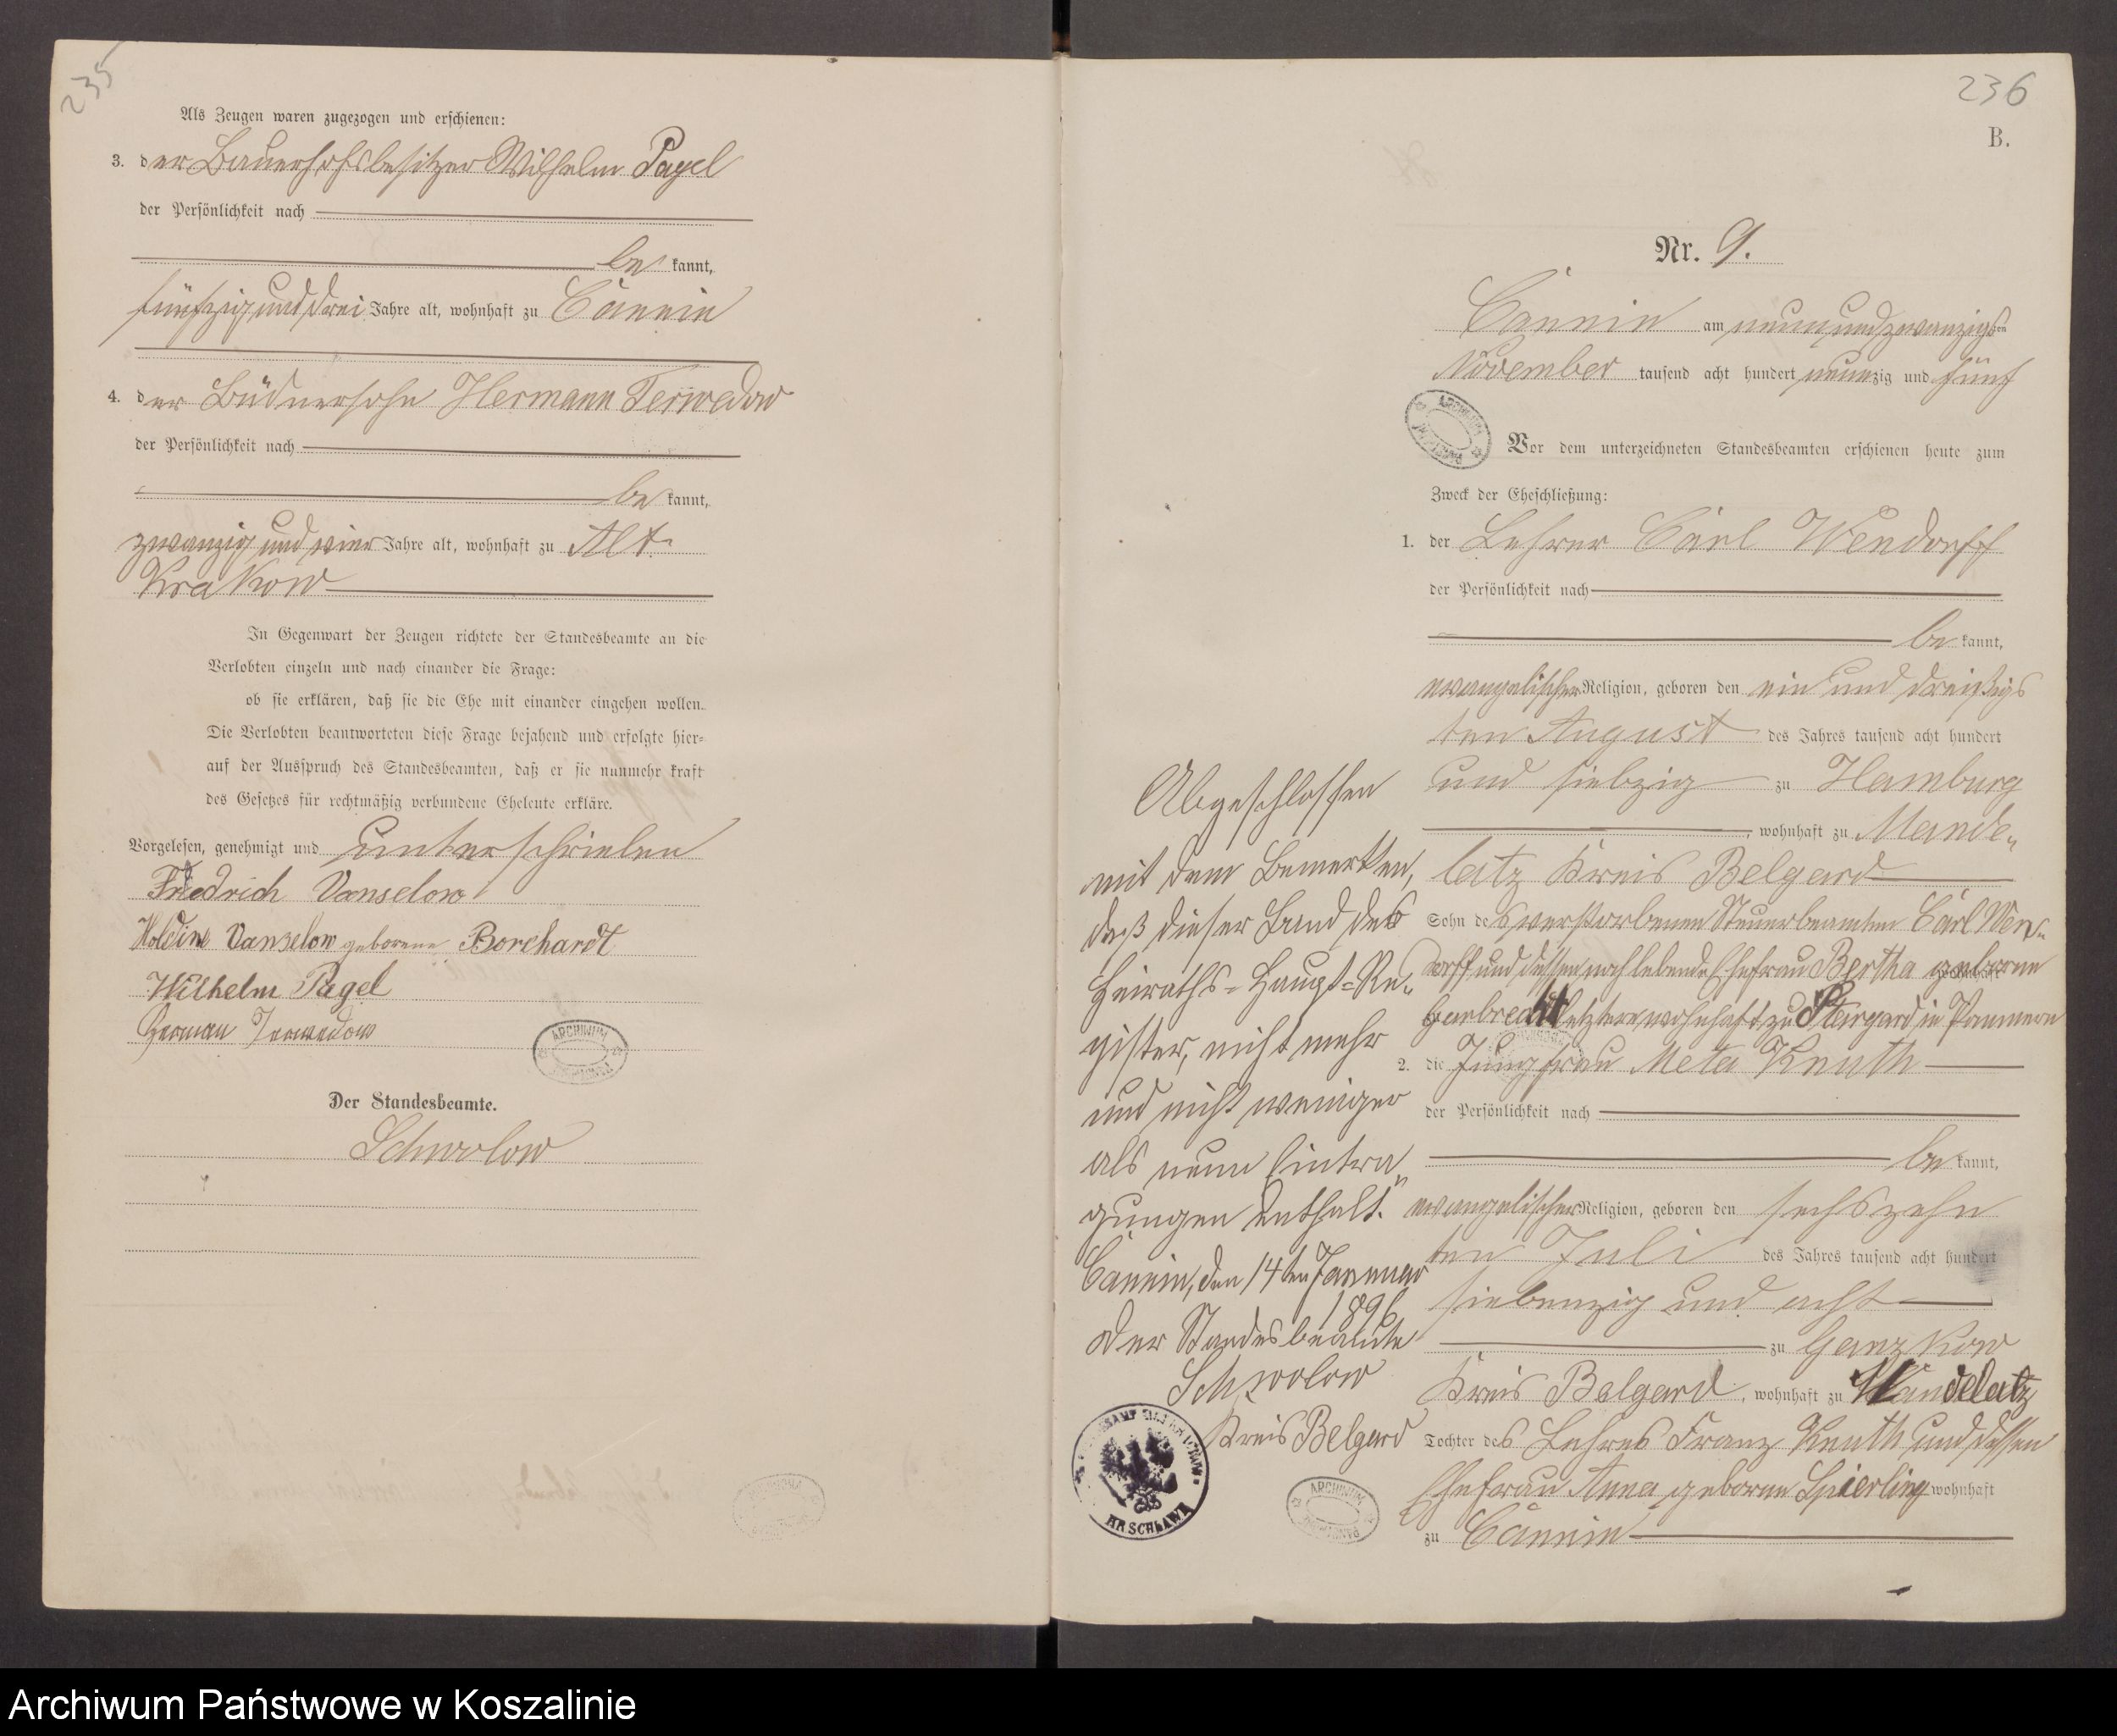 235
Als Zeugen waren zugezogen und erschienen:
3. der Bauerhofsbesitzer Wilhelm Pagel
der Persönlichkeit nach
be kannt,
fünfzig und drei Jahre alt, wohnhaft zu Cännin
4. der Büdnersohn Hermann Terwedow
der Persönlichkeit nach
be kannt,
zwanzig und vier Jahre alt, wohnhaft zu Alt-
Krakow
In Gegenwart der Zeugen richtete der Standesbeamte an die
Verlobten einzeln und nach einander die Frage:
ob sie erklären, daß sie die Ehe mit einander eingehen wollen.
Die Verlobten beantworteten diese Frage bejahend und erfolgte hier-
auf der Ausspruch des Standesbeamten, daß er sie nunmehr kraft
des Gesetzes für rechtmäßig verbundene Eheleute erkläre.
Vorgelesen, genehmigt und unterschrieben
Friedrich Vanselow
Vanselow geborene Borchardt
Wilhelm Pagel
Herman Terwedow
ARCHIWUM
Der Standesbeamte.
Schwolow
236
B.
Nr. 9.
Cännin am neunundzwanzigsten
November tausend acht hundert neunzig und fünf
ARCHIWUM
Vor dem unterzeichneten Standesbeamten erschienen heute zum
Zweck der Eheschließung:
1. der Lehrer Carl Wendorff
der Persönlichkeit nach
be kannt,
evangelischer Religion, geboren den ein und dreißigs
ten August des Jahres tausend acht hundert
und siebzig zu Hamburg
, wohnhaft zu Mande-
latz Kreis Belgard
Sohn des verstorbenen Steuerbeamten Carl Wen-
dorff und dessen noch lebende Ehefrau Bertha geborene
letztere wohnhaft zu Stargard in Pommern
2. die Jungfrau Meta Knuth
der Persönlichkeit nach
be kannt,
evangelischer Religion, geboren den sechszehn
ten Juli des Jahres tausend acht hundert
siebenzig und acht
zu Ganzkow
Kreis Belgard, wohnhaft zu Mandelatz
Tochter des Lehrers Franz Knuth und dessen
Ehefrau Anna geborene Spierling wohnhaft
zu Cännin
Abgeschlossen
mit dem Bemerken,
daß dieser Band des
Heiraths-Haupt-Re-
gister, nicht mehr
und nicht weniger
als neun Eintra-
gungen enthält.
Cännin, den 14ten Januar
1896
Der Standesbeamte
Schwolow
Kreis Belgard
KR SCHLAWE
ARCHIWUM
Archiwum Państwowe w Koszalinie